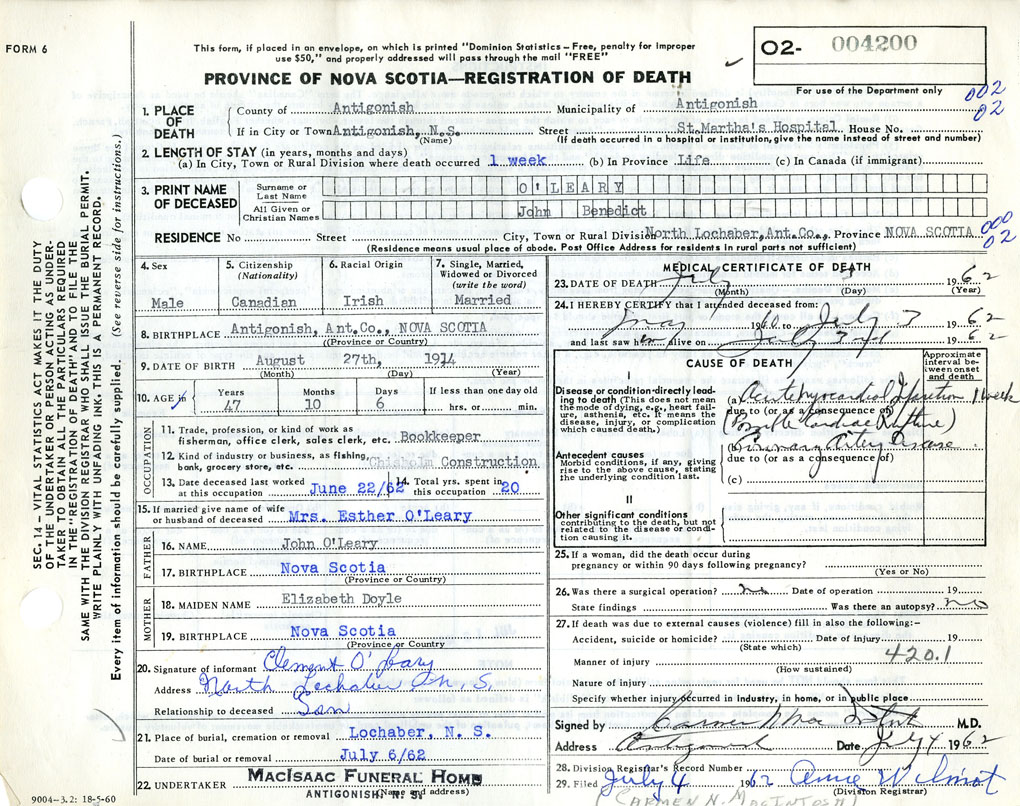 FORM 6
This form, if placed in an envelope, on which is printed "Dominion Statistics – Free, penalty for improper
use $50," and properly addressed will pass through the mail "FREE"
O2- 004200
For use of the Department only
PROVINCE OF NOVA SCOTIA—REGISTRATION OF DEATH
002
02
SEC. 14 – VITAL STATISTICS ACT MAKES IT THE DUTY
OF THE UNDERTAKER OR PERSON ACTING AS UNDER-
TAKER TO OBTAIN ALL THE PARTICULARS REQUIRED
IN THE "REGISTRATION OF DEATH" AND TO FILE THE
SAME WITH THE DIVISION REGISTRAR WHO SHALL ISSUE THE BURIAL PERMIT.
WRITE PLAINLY WITH UNFADING INK. THIS IS A PERMANENT RECORD.
Every item of information should be carefully supplied. (See reverse side for instructions.)
1. PLACE OF DEATH County of Antigonish Municipality of Antigonish
If in City or Town Antigonish, N.S. Street St. Martha's Hospital House No.
(Name) (If death occurred in a hospital or institution, give the name instead of street and number)
2. LENGTH OF STAY (in years, months and days)
(a) In City, Town or Rural Division where death occurred 1 week (b) In Province Life (c) In Canada (if immigrant)
3. PRINT NAME OF DECEASED Surname or Last Name O'LEARY
All Given or Christian Names John Benedict
RESIDENCE No Street City, Town or Rural Division North Lochaber, Ant.Co., Province NOVA SCOTIA
000
02
(Residence means usual place of abode. Post Office Address for residents in rural parts not sufficient)
4. Sex Male
5. Citizenship (Nationality) Canadian
6. Racial Origin Irish
7. Single, Married, Widowed or Divorced (write the word) Married
8. BIRTHPLACE Antigonish, Ant.Co., NOVA SCOTIA
(Province or Country)
9. DATE OF BIRTH August 27th, 1914
(Month) (Day) (Year)
10. AGE in Years 47 Months 10 Days 6 If less than one day old hrs. or min.
OCCUPATION
11. Trade, profession, or kind of work as
fisherman, office clerk, sales clerk, etc. Bookkeeper
12. Kind of industry or business, as fishing,
bank, grocery store, etc. Chisholm Construction
13. Date deceased last worked at this occupation June 22/62 14. Total yrs. spent in this occupation 20
15. If married give name of wife
or husband of deceased Mrs. Esther O'Leary
FATHER
16. NAME John O'Leary
17. BIRTHPLACE Nova Scotia
(Province or Country)
MOTHER
18. MAIDEN NAME Elizabeth Doyle
19. BIRTHPLACE Nova Scotia
(Province or Country
20. Signature of informant Clement O'Leary
Address North Lochaber N.S.
Relationship to deceased Son
21. Place of burial, cremation or removal Lochaber, N. S.
Date of burial or removal July 6/62
22. UNDERTAKER MacIsaac Funeral Home
ANTIGONISH, N. S.
(Name and address)
9004–3.2: 18-5-60
MEDICAL CERTIFICATE OF DEATH
23. DATE OF DEATH July 1962
(Month) (Day) (Year)
24. I HEREBY CERTIFY that I attended deceased from:
1960 to July 3 1962
and last saw him alive on July 3rd 1962
CAUSE OF DEATH
Approximate interval between onset and death
I
Disease or condition directly leading to death (This does not mean the mode of dying, e.g., heart failure, asthenia, etc. It means the disease, injury, or complication which caused death.)
(a) Acute Myocardial Infarction 1 week
due to (or as a consequence of)
(Possible Cardiac Rupture)
Antecedent causes
Morbid conditions, if any, giving rise to the above cause, stating the underlying condition last.
(b) Coronary Artery Disease
due to (or as a consequence of)
(c)
II
Other significant conditions
contributing to the death, but not related to the disease or condition causing it.
25. If a woman, did the death occur during
pregnancy or within 90 days following pregnancy?
(Yes or No)
26. Was there a surgical operation? no Date of operation 19
State findings Was there an autopsy? no
27. If death was due to external causes (violence) fill in also the following:–
Accident, suicide or homicide? Date of injury 19
(State which)
Manner of injury 420.1
(How sustained)
Nature of injury
Specify whether injury occurred in industry, in home, or in public place
Signed by Carmen MacIntosh M.D.
Address Antigonish Date July 4 1962
28. Division Registrar's Record Number
29. Filed July 4 1962 Anne Wilmot
(Division Registrar)
(CARMEN N. MACINTOSH)